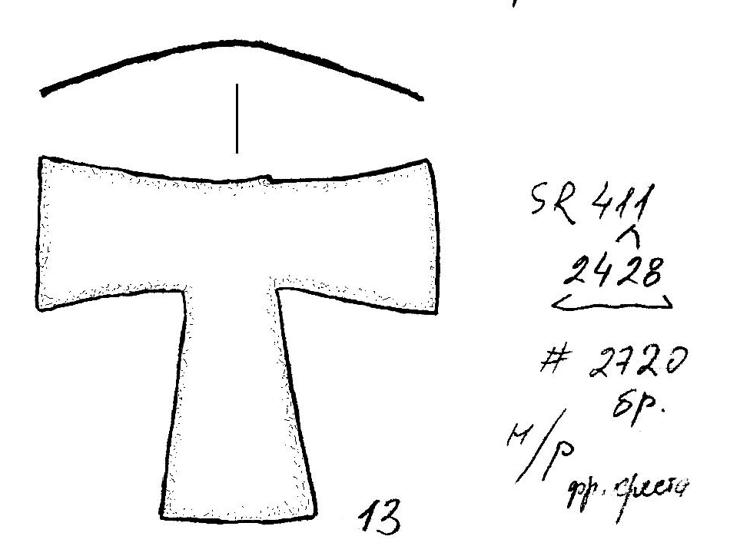 SR 411
2428
# 2720
бр.
м/р
фр. креста
13